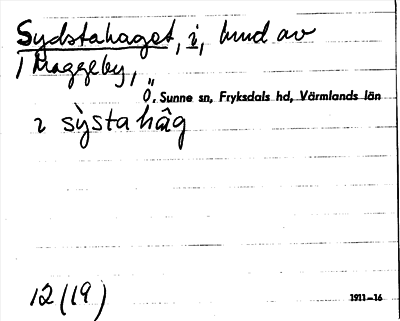 Sydstahaget, i, hmd av
1 Maggeby,
Ö. Sunne sn, Fryksdals hd, Värmlands län
2 sỳsta hâg
12 (19)
1911–16